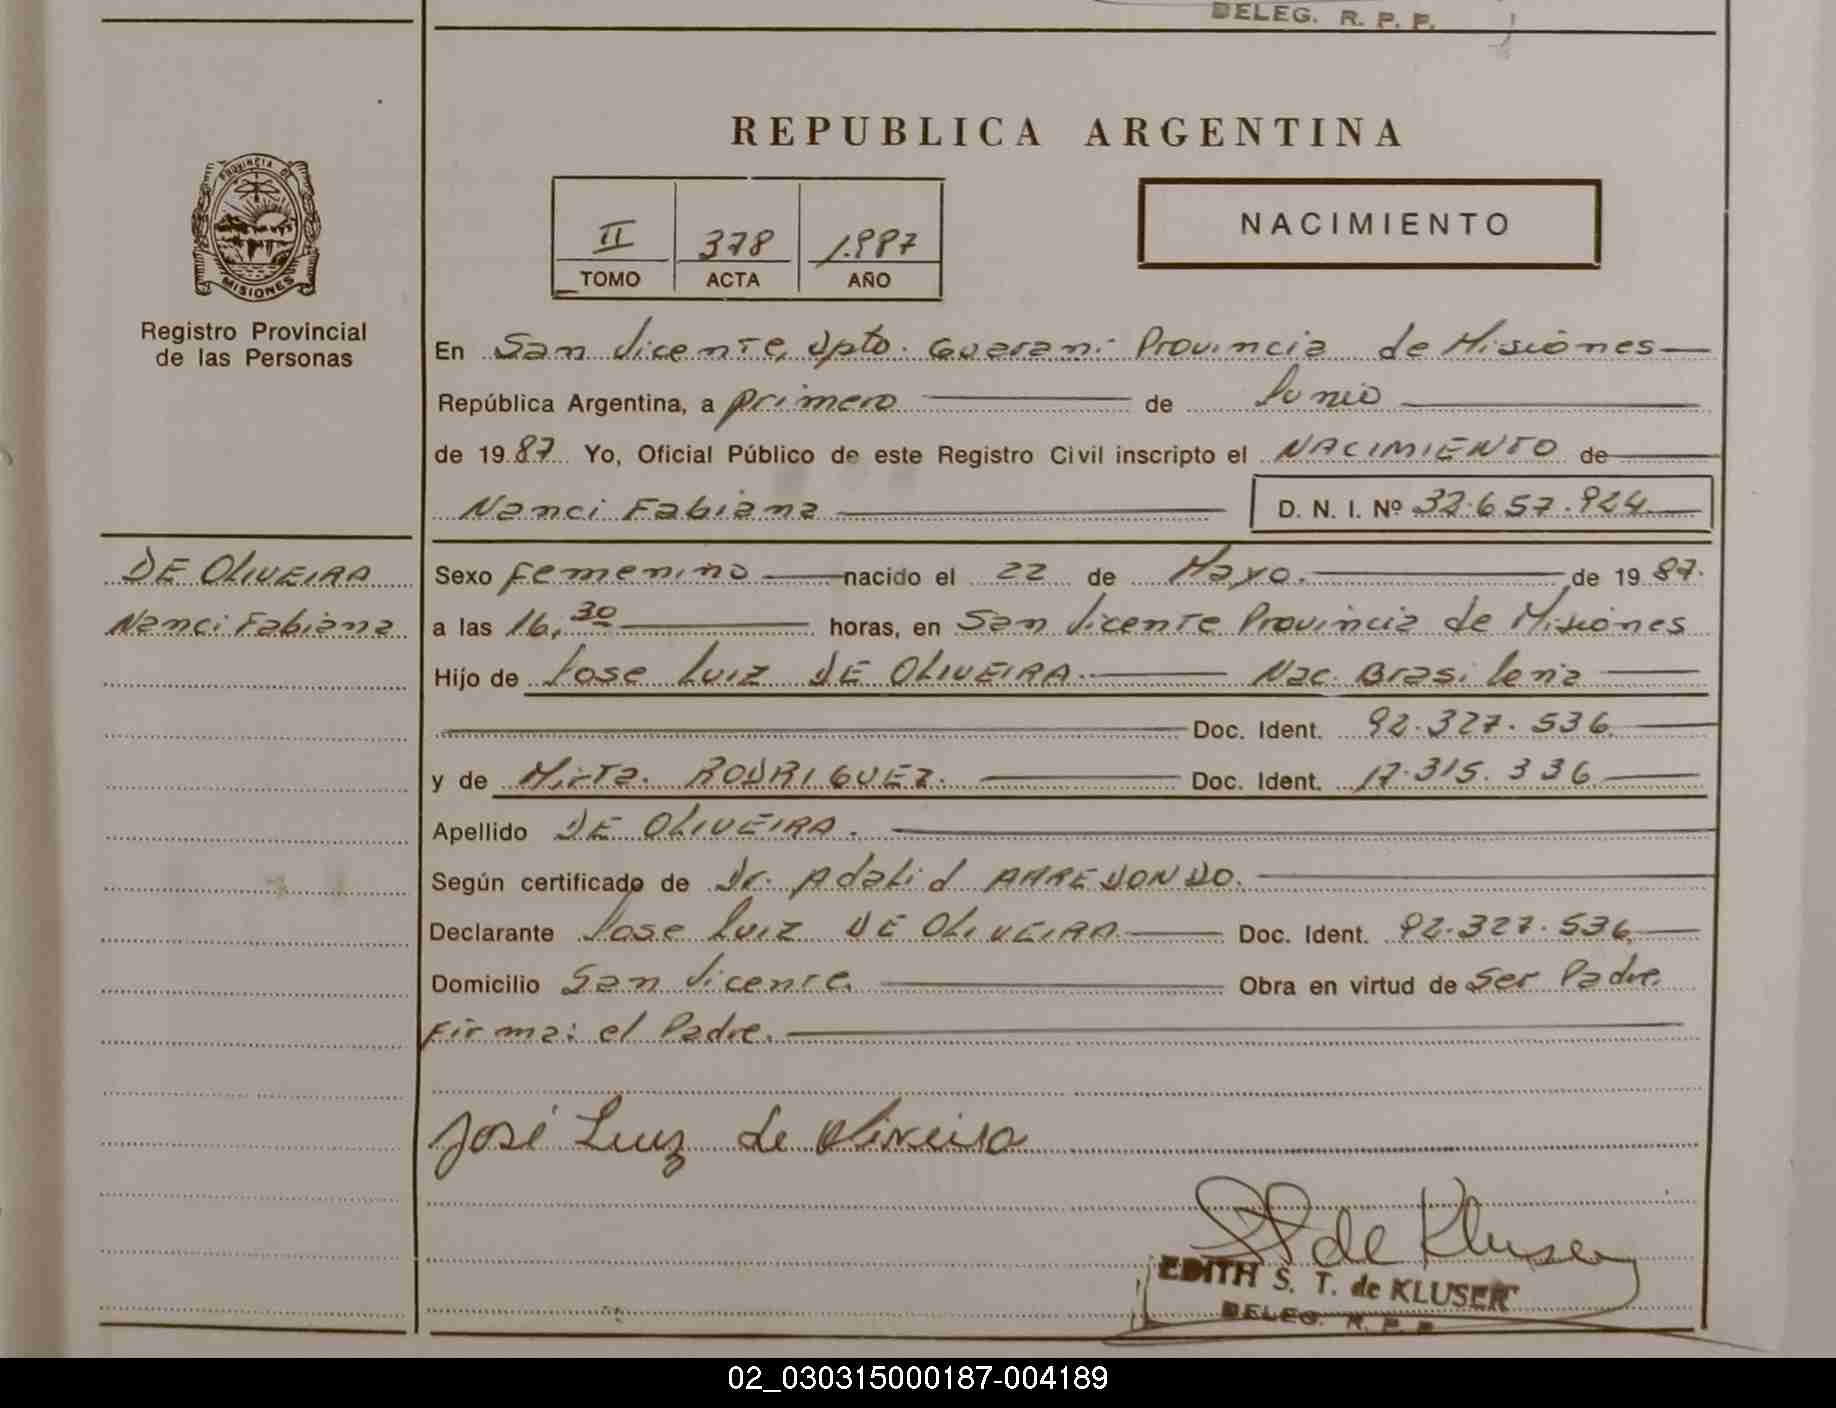 DELEG. R. P. P.
REPUBLICA ARGENTINA
PROVINCIA DE
MISIONES
Registro Provincial
de las Personas
II 378 1.987
TOMO ACTA AÑO
NACIMIENTO
En San Vicente, Dpto. Guaraní Provincia de Misiones
República Argentina, a primero de Junio
de 1987 Yo, Oficial Público de este Registro Civil inscripto el NACIMIENTO de
Nanci Fabiana D. N. I. Nº 32.657.924
DE OLIVEIRA
Nanci Fabiana
Sexo femenino nacido el 22 de Mayo. de 1987.
a las 16,30 horas, en San Vicente Provincia de Misiones
Hijo de Jose Luiz DE OLIVEIRA. Nac. Brasileña
Doc. Ident. 92.327.536
y de Mirta. RODRIGUEZ. Doc. Ident. 17.315.336
Apellido DE OLIVEIRA.
Según certificado de Dr. Adalid ARREDONDO.
Declarante Jose Luiz DE OLIVEIRA Doc. Ident. 92.327.536
Domicilio San Vicente. Obra en virtud de Ser Padre.
Firma: el Padre.
José Luiz de Oliveira
de Kluser
EDITH S. T. de KLUSER
DELEG. R. P. P.
02_030315000187-004189